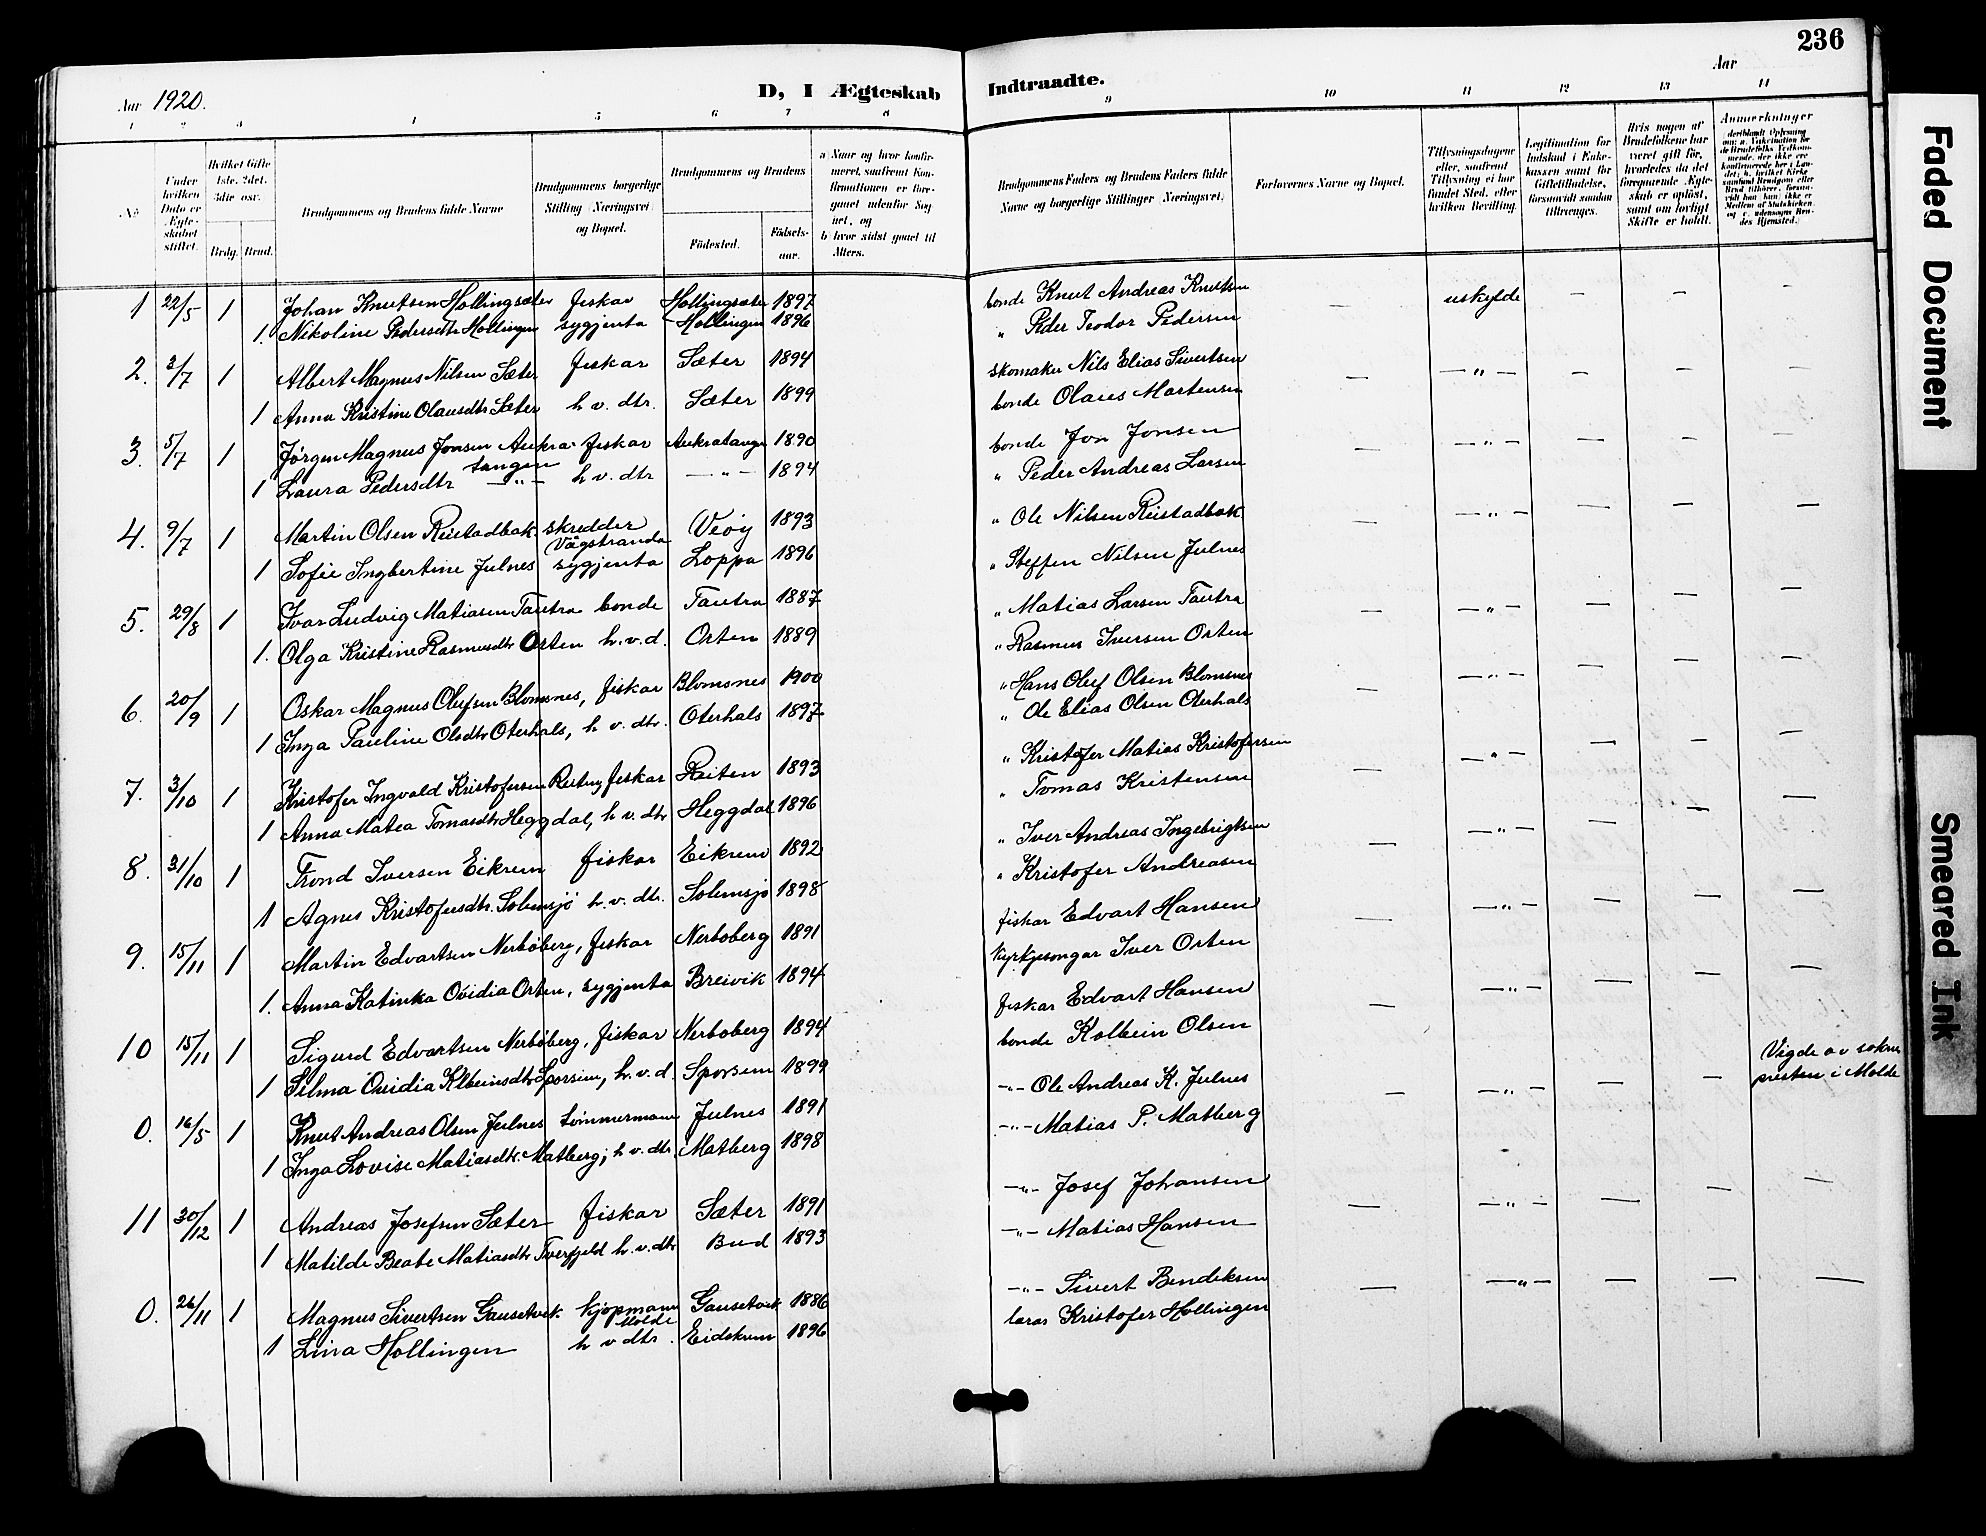 236
Aar 1920.
D, I Ægteskab Indtraadte.
Aar
1 2 3 4 5 6 7 8 9 10 11 12 13 14
No.
Under hvilken Dato er Ægteskabet stiftet.
Hvilket Gifte 1ste, 2det, 3die osv.
Brdg. Brud.
Brudgommens og Brudens fulde Navne
Brudgommens borgerlige Stilling (Næringsvei) og Bopæl.
Brudgommens og Brudens
Födested.
Födselsaar.
a) Naar og hvor konfirmeret, saafremt Konfirmationen er foregaaet udenfor Sognet, og
b) hvor sidst gaaet til Alters.
Brudgommens Faders og Brudens Faders fulde Navne og borgerlige Stillinger (Næringsvei)
Forlovernes Navne og Bopæl.
Tillysningsdagene eller, saafremt Tillysning ei har fundet Sted, efter hvilken Bevilling.
Legitimation for Indskud i Enkekassen samt for Giftetilladelse, forsaavidt saadan tiltrænges.
Hvis nogen af Brudefolkene har været gift för, hvorledes da det foregaaende Ægteskab er oplöst, samt om lovligt Skifte er holdt.
Anmerkninger
1 22/5 1 Johan Knutsen Hollingsæter fiskar Hollingsæter 1897 bonde Knut Andreas Knutsen — uskylde — — —
1. Nikoline Pedersdtr Hollingen sygjenta Hollingen 1896 " Peder Teodor Pedersen
2. 3/7 1 Albert Magnus Nilsen Sæter fiskar Sæter 1894 skomaker Nils Elias Sivertsen — —"— — — —
1 Anna Kristine Olausdtr Sæter h v. dtr. Sæter 1899 bonde Olaus Martensen
3. 5/7 1 Jørgen Magnus Jonsen Aukratangen fiskar Aukratangen 1890 bonde Jon Jonsen — —"— — — —
1 Laura Pedersdtr —"— h v. dtr —"— 1894 " Peder Andreas Larsen
4. 9/7 1 Martin Olsen Reistadbak. skredder Vågstranda Veøy 1893 " Ole Nilsen Reistadbak — —"— — — —
1 Sofie Ingbertine Julnes sygjenta Loppa 1896 " Steffen Nilsen Julnes
5. 29/8 1 Ivar Ludvig Matiasen Tautra bonde Tautra 1887 " Matias Larsen Tautra — —"— — — —
1. Olga Kristine Rasmusdtr Orten h.v.d. Orten 1889 " Rasmus Iversen Orten
6. 20/9 1 Oskar Magnus Olufsen Blomsnes, fiskar Blomsnes 1900 " Hans Oluf Olsen Blomsnes — —"— — — —
1 Inga Pauline Olsdtr Oterhals, h v. dtr. Oterhals 1897 " Ole Elias Olsen Oterhals
7. 3/10 1 Kristofer Ingvald Kristofersen fiskar Raiten 1893 " Kristofer Matias Kristofersen — —"— — — —
1 Anna Matea Tomasdtr Heggdal, h v. dtr Heggdal 1896 " Tomas Kristensen
8. 31/10 1 Trond Iversen Eikrem fiskar Eikrem 1892 " Iver Andreas Ingebrigtsen — —"— — — —
1 Agnes Kristofersdtr. Solemsjö h. v. dtr. Solemsjo 1898 " Kristofer Andreasen
9. 15/11 1 Martin Edvartsen Nerbøberg, fiskar Nerboberg 1891 fiskar Edvart Hansen — —"— — — —
1. Anna Katinka Ovidia Orten, sygjenta Breivik 1894 kyrkjesongar Iver Orten
10 15/11 1 Sigurd Edvartsen Nerbøberg, fiskar Nerboberg 1894 fiskar Edvart Hansen — —"— — — —
1 Selma Ovidia Klbeinsdtr Sporsem, h.v.d. Sporsem 1899 bonde Kolbein Olsen
0. 16/5 1 Knut Andreas Olsen Julnes tømmermann Julnes 1891 —"— Ole Andreas K. Julnes — —"— — — Vigde av sokne presten i Molde
1 Inga Lovise Matiasdtr. Matberg, h v. dtr. Matberg 1898 —"— Matias P. Matberg
11 30/12 1 Andreas Josefsen Sæter fiskar Sæter 1891 —"— Josef Johansen — —"— — — —
1 Matilde Beate Matiasdtr Tverfjeld h.v.dtr Bud 1893 —"— Matias Hansen
0. 26/11 1 Magnus Sivertsen Gausetvik. kjøpmann Molde Gausetvik 1886 —"— Sivert Bendiksen — —"— — — —
1 Lina Hollingen h v dtr. Eidskrem 1896 lærar Kristofer Hollingen
Faded Document
Smeared Ink